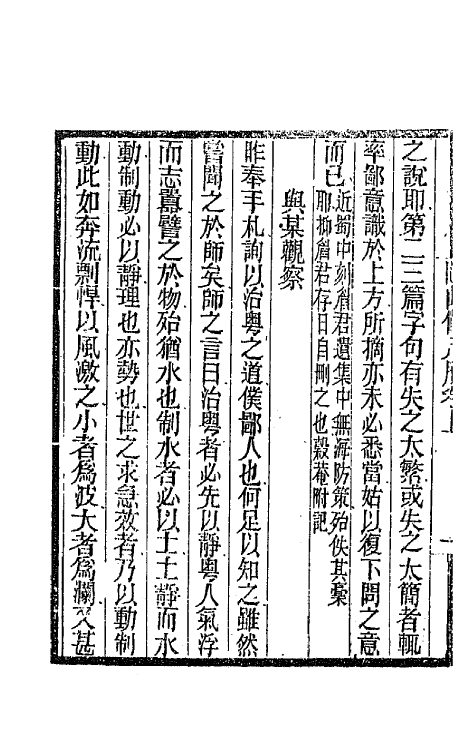 之說耶第二三篇字句有失之太繁或失之太簡者輒
率鄙意識於上方所摘亦未必悉當姑以復下問之意
而已
近蜀中刻眉君遺集中無海防策殆佚其稾
耶抑眉君存日自刪之也穀菴附記
與某觀察
昨奉手札詢以治粵之道僕鄙人也何足以知之雖然
嘗聞之於師矣師之言曰治粵者必先以靜粵人氣浮
而志囂譬之於物殆猶水也制水者必以土土靜而水
動制動必以靜理也亦勢也世之求急效者乃以動制
動此如奔流剽悍以風激之小者爲波大者爲瀾又甚